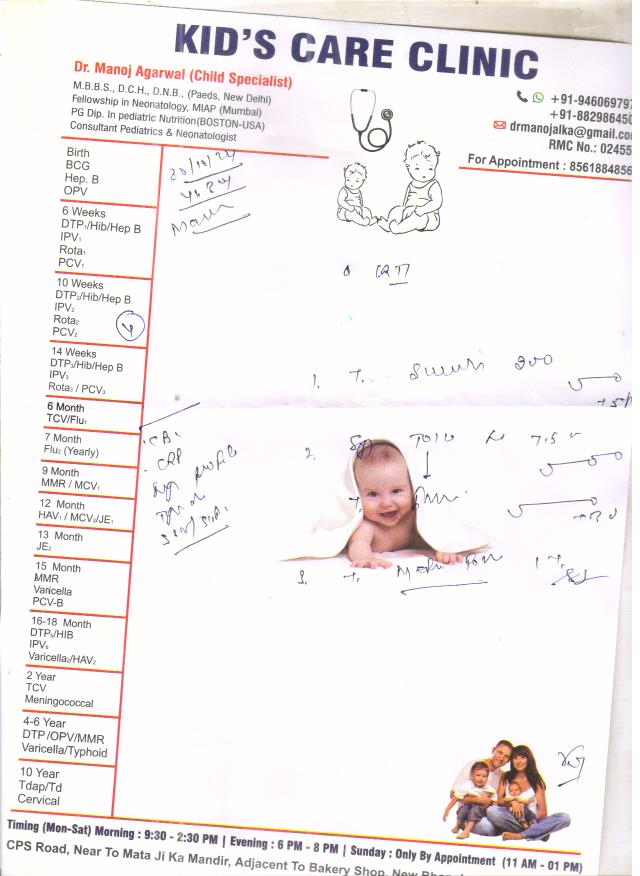 KID'S CARE CLINIC
Dr. Manoj Agarwal (Child Specialist)
M.B.B.S., D.C.H., D.N.B., (Paeds, New Delhi)
Fellowship in Neonatology, MIAP (Mumbai)
PG Dip. In pediatric Nutrition(BOSTON-USA)
Consultant Pediatrics & Neonatologist
+91-946069797
+91-882986450
drmanojalka@gmail.co
RMC No.: 02455
For Appointment : 8561884856
Birth
BCG
Hep. B
OPV
6 Weeks
DTP₁/Hib/Hep B
IPV₁
Rota₁
PCV₁
10 Weeks
DTP₂/Hib/Hep B
IPV₂
Rota₂
PCV₂
14 Weeks
DTP₃/Hib/Hep B
IPV₃
Rota₃ / PCV₃
6 Month
TCV/Flu₁
7 Month
Flu₂ (Yearly)
9 Month
MMR / MCV₁
12 Month
HAV₁ / MCV₂/JE₁
13 Month
JE₂
15 Month
MMR
Varicella
PCV-B
16-18 Month
DTP₅/HIB
IPV₅
Varicella₂/HAV₂
2 Year
TCV
Meningococcal
4-6 Year
DTP/OPV/MMR
Varicella/Typhoid
10 Year
Tdap/Td
Cervical
1. T. 200
2. 7.5
CRP
profile
3. T.
Timing (Mon-Sat) Morning : 9:30 - 2:30 PM | Evening : 6 PM - 8 PM | Sunday : Only By Appointment (11 AM - 01 PM)
CPS Road, Near To Mata Ji Ka Mandir, Adjacent To Bakery Shop, New